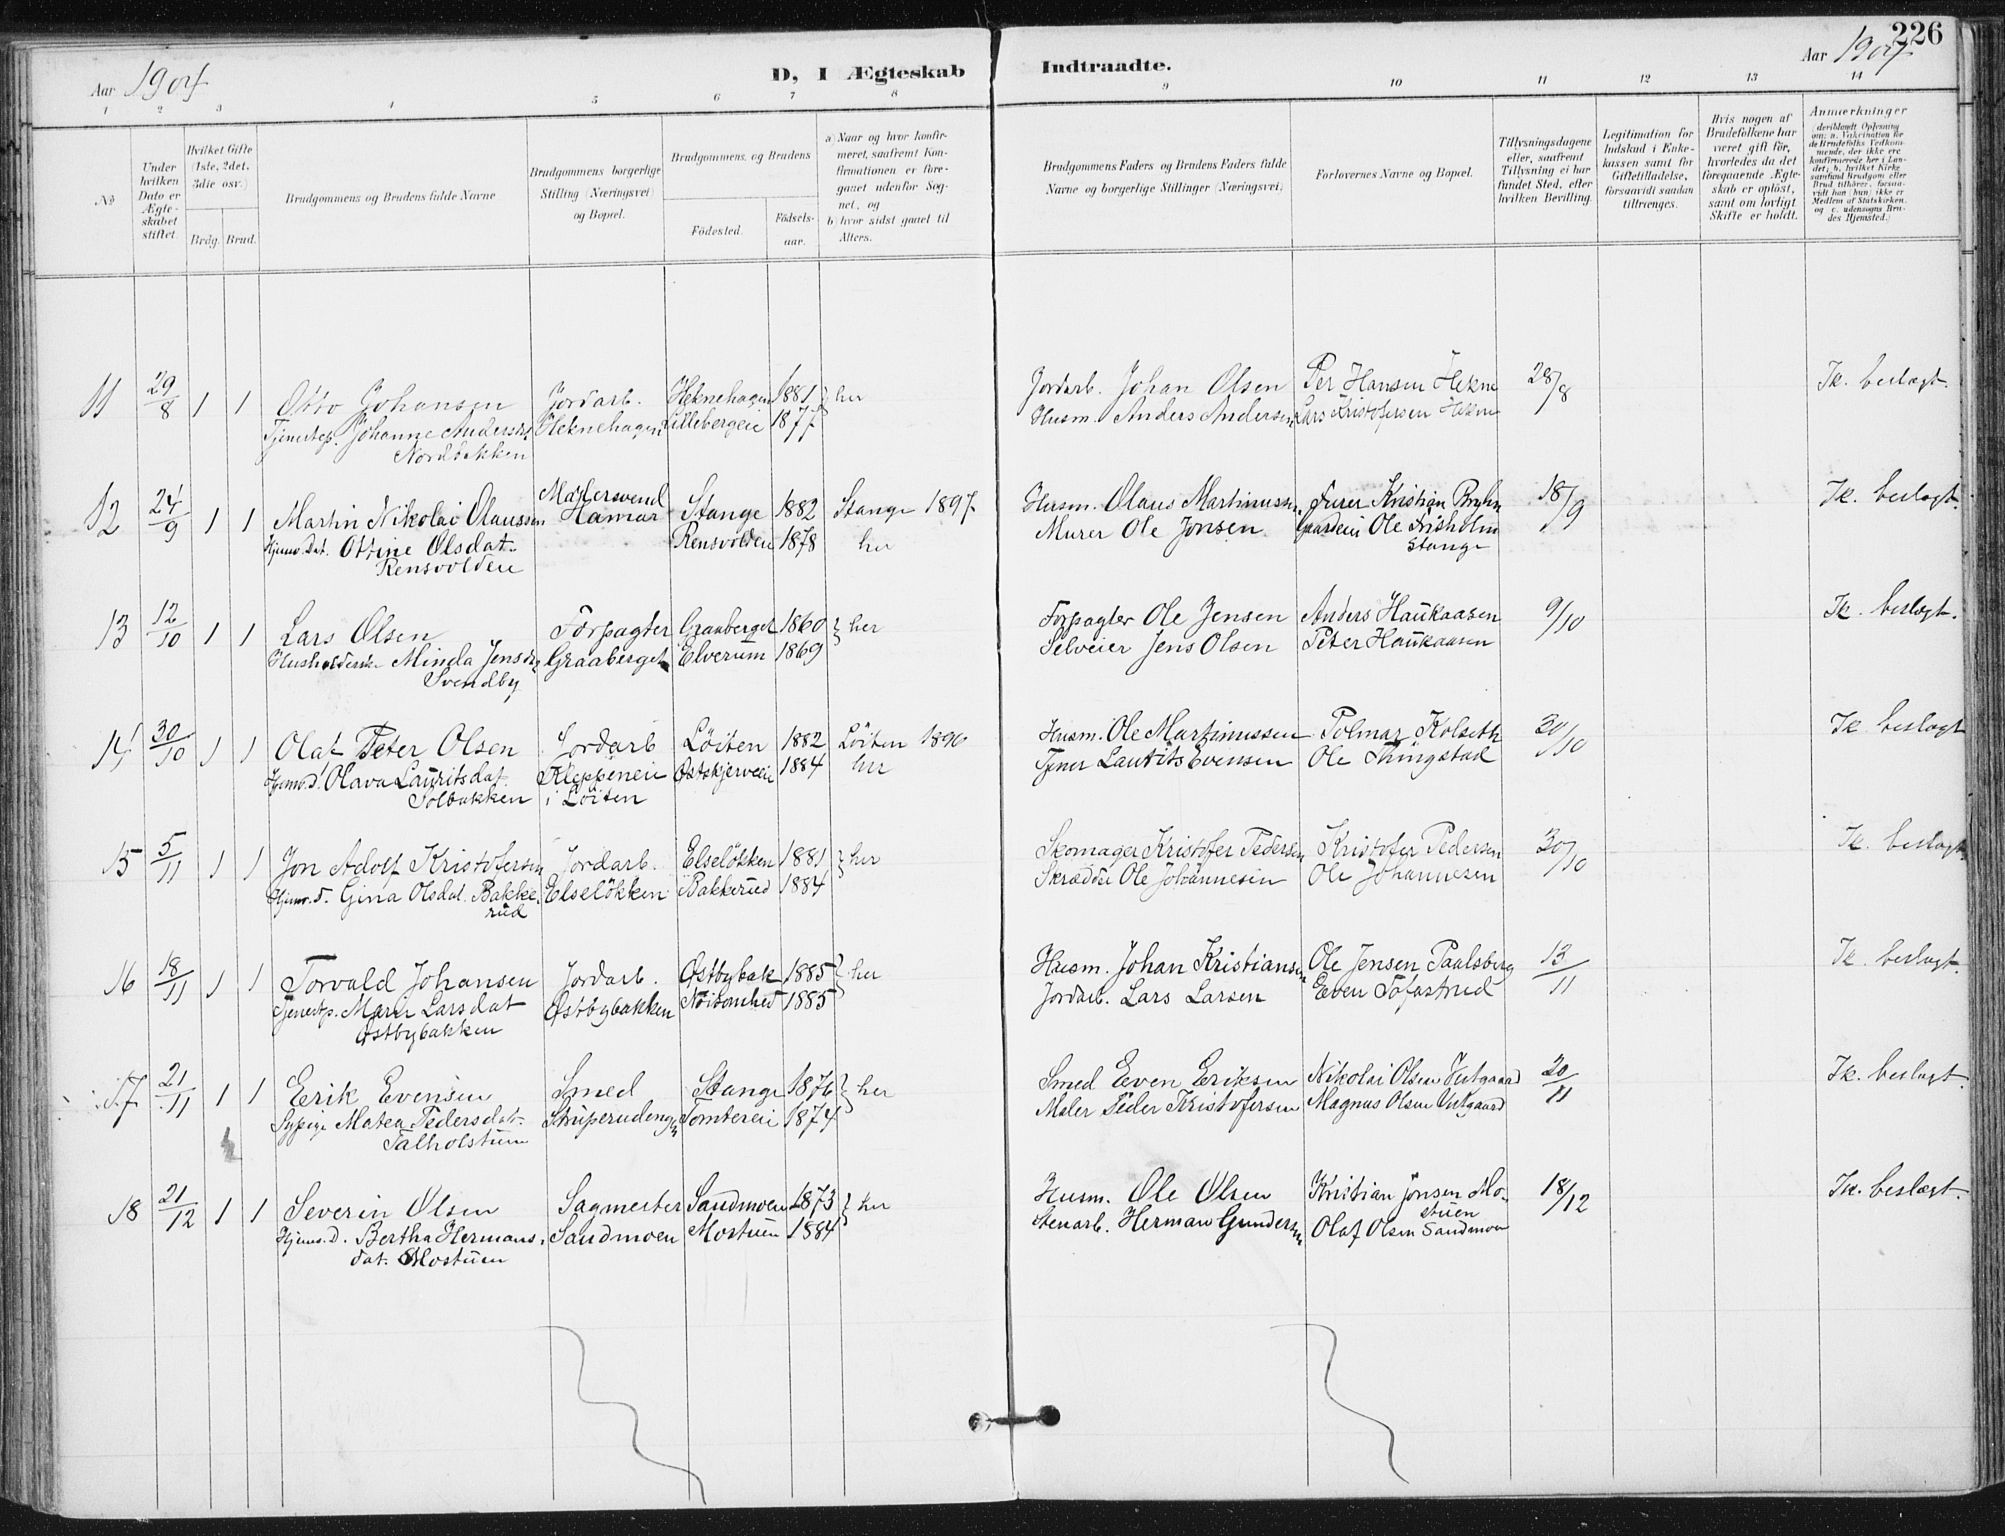 226
Aar 1904
D, I Ægteskab Indtraadte.
Aar 1904
1 2 3 4 5 6 7 8 9 10 11 12 13 14
No
Under hvilken Dato er Ægteskabet stiftet.
Hvilket Gifte (1ste, 2det, 3die osv.)
Brdg. Brud.
Brudgommens og Brudens fulde Navne
Brudgommens borgerlige Stilling (Næringsvei) og Bopæl.
Brudgommens og Brudens
Fødested.
Fødselsaar.
a) Naar og hvor konfirmeret, saafremt Konfirmationen er foregaaet udenfor Sognet, og
b) hvor sidst gaaet til Alters.
Brudgommens Faders og Brudens Faders fulde Navne og borgerlige Stillinger (Næringsvei)
Forlovernes Navne og Bopæl.
Tillysningsdagene eller, saafremt Tillysning ei har fundet Sted, efter hvilken Bevilling.
Legitimation for Indskud i Enkekassen samt for Giftetilladelse, forsaavidt saadan tiltrænges.
Hvis nogen af Brudefolkene har været gift før, hvorledes da det foregaaende Ægteskab er opløst, samt om lovligt Skifte er holdt.
Anmerkninger
(deriblandt Oplysning om: a. Vakcination for de Brudefolks Vedkommende, der ikke ere konfirmerede her i Landet; b. hvilket Kirkesamfund Brudgom eller Brud tilhører, forsaavidt han (hun) ikke er Medlem af Statskirken, og c. udensogns Brudes Hjemsted.)
11 29/8 1 1 Otto Johansen Jordarb. Heknehagen 1881 } her Jordarb. Johan Olsen Per Hansen Hekne 28/8 Ik. beslægt.
Tjenestep. Johanne Andersdt. Heknehagen Lillebergeie 1877 Husm. Anders Andersen Lars Kristofersen Hekne
Nordbakken
12 24/9 1 1 Martin Nikolai Olaussen Malersvend Hamar Stange 1882 Stange 1897 Husm. Olaus Martinussen Furer Kristian Bryhn 18/9 Ik. beslægt.
Hjemv. Dat. Ottine Olsdat. Rensvolden 1878 her Murer Ole Jonsen Gaardeier Ole Frisholm
Rensvolden Stange
13 12/10 1 1 Lars Olsen Forpagter Graaberget 1860 } her Forpagter Ole Jensen Anders Haukaasen 9/10 Ik. beslægt.
Husholderske Minda Jensdt. Graaberget Elverum 1869 Selveier Jens Olsen Peter Haukaasen
Svendby
14 30/10 1 1 Olaf Peter Olsen Jordarb Löiten 1882 Löiten 1896 Husm. Ole Martinussen Polmar Kolseth 30/10 Ik beslægt
Hjemv. d. Olava Lauritsdat Kleppeneie Östskjerveie 1884 her Tjener Laurits Evensen Ole Thingstad
Tolbakken i Löiten
15 5/11 1 1 Jon Adolf Kristofersen Jordarb. Elselökken 1881 } her Skomager Kristofer Pedersen Kristofer Pedersen 30/10 Ik. beslægt.
Hjemv. d. Gina Olsdat. Bakke- Elselökken Bakkerud 1884 Skrædder Ole Johannesen Ole Johannesen
rud
16 18/11 1 1 Torvald Johansen Jordarb. Østbybak 1885 } her Husm. Johan Kristiansen Ole Jensen Paulsberg 13/11 Ik. beslægt.
Tjenestp. Marie Larsdat Østbybakken Noisomhed 1885 Jordarb. Lars Larsen Even Tofastrud
Østbybakken
17 21/11 1 1 Erik Evensen Smed Stange 1876 } her Smed Even Eriksen Nikolai Olsen Vestgaard 20/11 Ik. beslægt.
Sypige Matea Pedersdat. Struperudengen Tomtereie 1874 Maler Peder Kristofersen Magnus Olsen Vestgaard
Talholstuen
18 21/12 1 1 Severin Olsen Sagmester Sandmoen 1873 } her Husm. Ole Olsen Kristian Jonsen Mo- 18/12 Ik. beslægt.
stuen
Hjemv. D. Bertha Hermans- Sandmoen Mostuen 1884 Stenarb. Herman Gundersen Olaf Olsen Sandmoen
dat. Mostuen